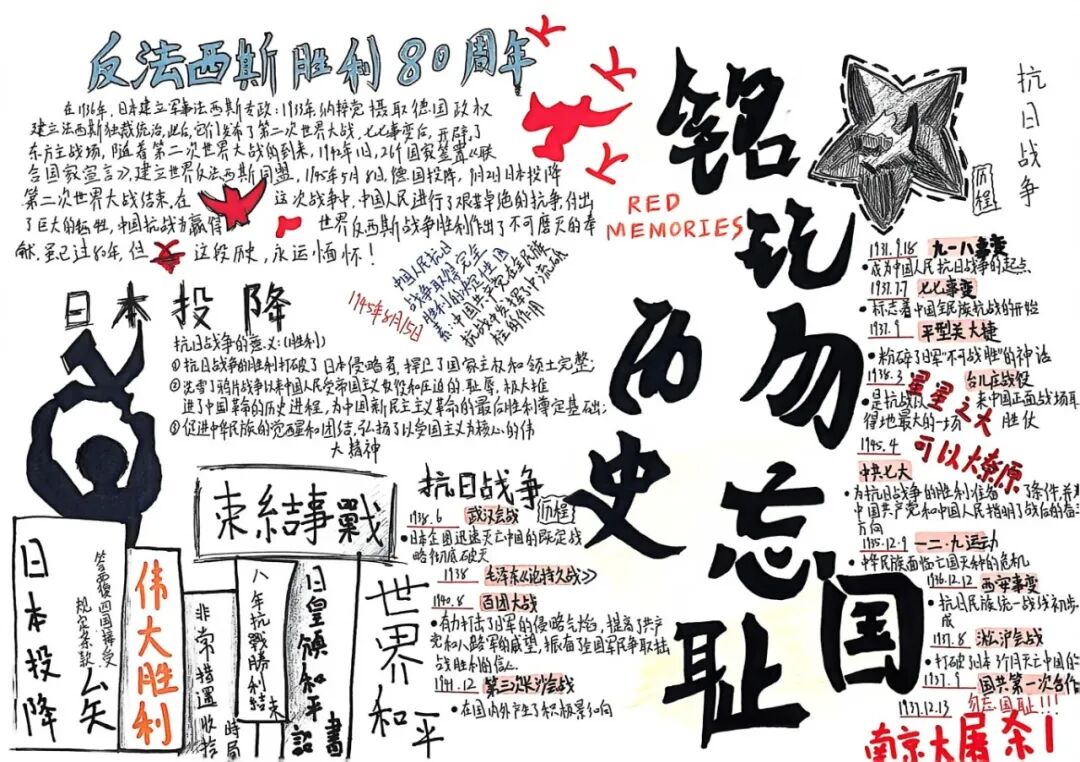 反法西斯胜利80周年
在1936年,日本建立军事法西斯专政;1933年纳粹党摄取德国政权
建立法西斯独裁统治,此后,它们发动了第二次世界大战,七七事变后,开辟了
东方主战场,随着第二次世界大战的到来,1942年1月,26个国家签署《联
合国家宣言》,建立世界反法西斯同盟,1945年5月8日,德国投降,9月2日日本投降
第二次世界大战结束,在这次战争中,中国人民进行了艰苦卓绝的抗争,付出
了巨大的牺牲,中国抗战为赢得世界反西斯战争胜利作出了不可磨灭的奉
献.虽已过80年,但这段历史,永远缅怀!
RED
MEMORIES
铭记勿忘国耻
历史
日本投降
1945年8月15日
中国人民抗日
战争取得完全
胜利的决定性因
素:中国共产党在全民族
抗战中发挥中流砥
柱的作用
抗日战争的意义:(胜利)
①抗日战争的胜利打破了日本侵略者,捍卫了国家主权和领土完整;
②洗雪了鸦片战争以来中国人民受帝国主义奴役和压迫的耻辱,极大推
进了中国革命的历史进程,为中国新民主主义革命的最后胜利奠定基础;
③促进中华民族的觉醒和团结,弘扬了以爱国主义为核心的伟
大精神
束結事戰
日本投降
答覆四国接受
规定条款
伟大胜利
非常措遇收拾
時局
八年抗戰勝利結束
日皇頒和平
詔書
世界和平
抗日战争
历程
1938.6 武汉会战
•日本企图迅速灭亡中国的既定战
略彻底破灭
1938 毛泽东《论持久战》
1940.8 百团大战
•有力打击了日军的侵略气焰,提高了共产
党和八路军的威望,振奋了全国军民争取抗
战胜利的信心
1941.12 第三次长沙会战
•在国内外产生了积极影响
抗日战争
历程
1931.9.18 九一八事变
•成为中国人民抗日战争的起点
1937.7.7 七七事变
•标志着中国全民族抗战的开始
1937.9 平型关大捷
•粉碎了日军"不可战胜"的神话
1938.3 台儿庄战役
•是抗战以来中国正面战场取
得地最大的一场胜仗
星星之火
可以大燎原
1945.4
中共七大
•为抗日战争的胜利准备了条件,并为
中国共产党和中国人民指明了战后的奋斗
方向
1935.12.9 一二·九运动
•中华民族面临亡国灭种的危机
1936.12.12 西安事变
•抗日民族统一战线初步形
成
1937.8 淞沪会战
•打破日本3个月灭亡中国的
1937.9 国共第一次合作
1937.12.13 勿忘国耻!!!
南京大屠杀!